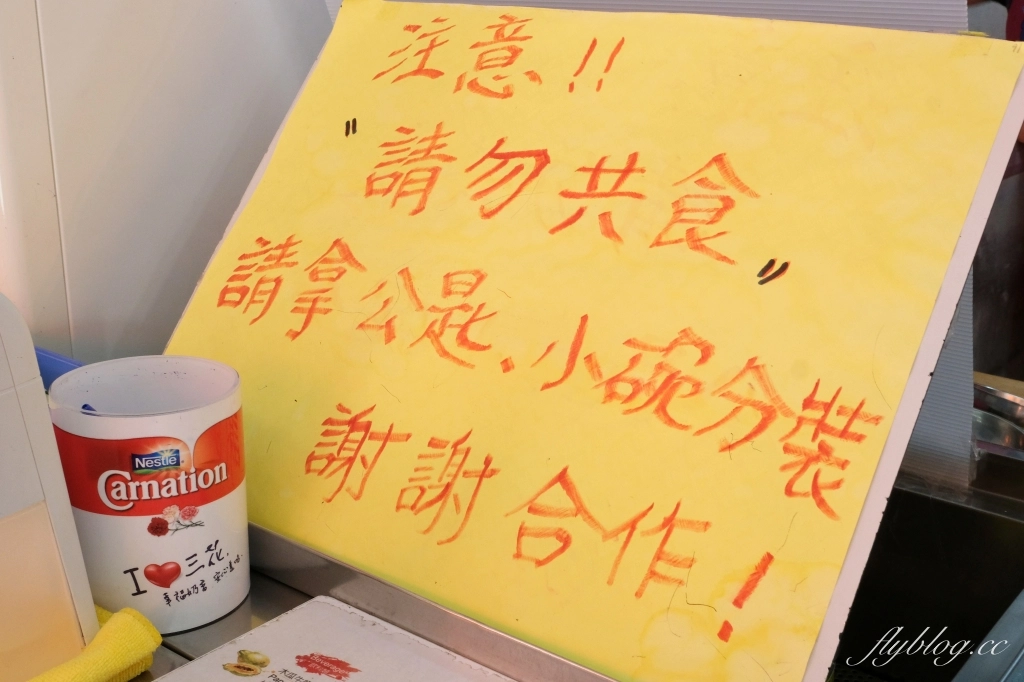 注意!!
"請勿共食"
請拿公匙、小碗分裝
謝謝合作!
Nestlé
Carnation
I ❤ 三花
Beverage
flyblog.cc